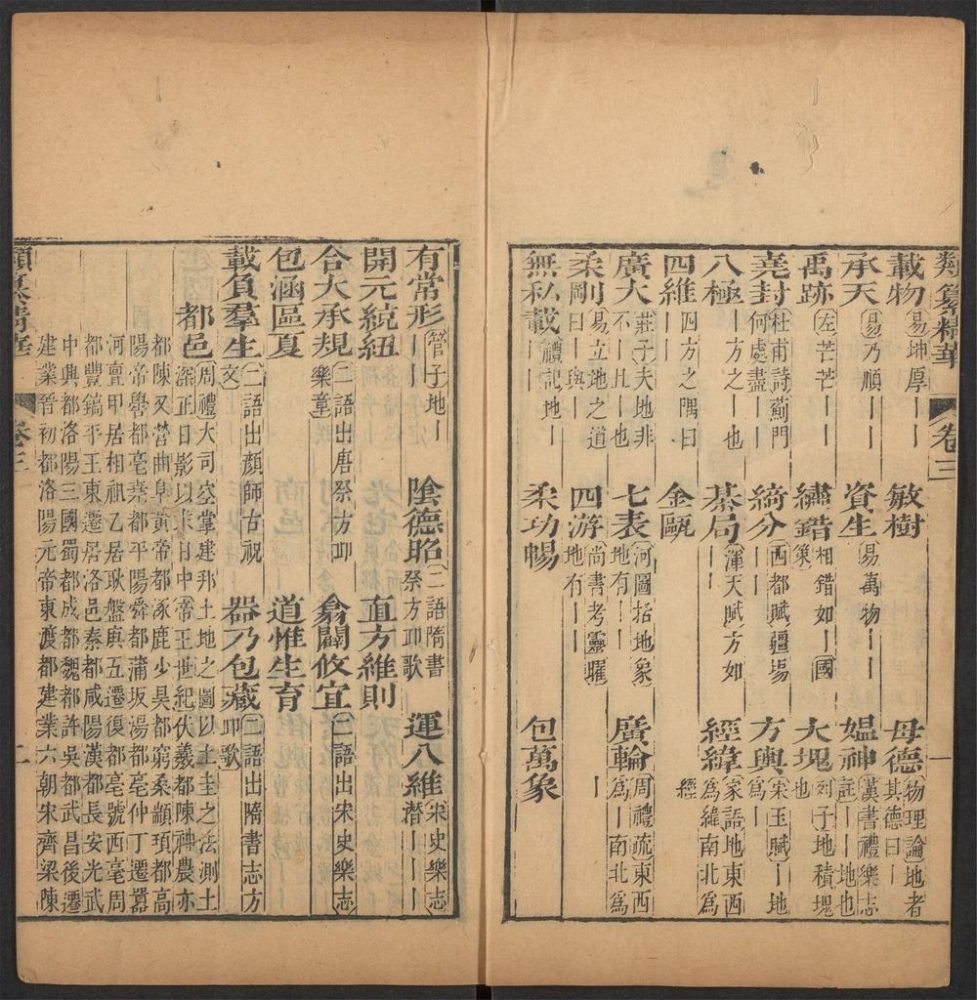 類纂精華 卷三
載物易坤厚｜｜ 敏樹 母德物理論地者其德曰｜
承天易乃順｜｜ 資生易萬物｜｜ 媼神漢書禮樂志註｜｜地也
禹跡左芒芒｜｜ 繡錯相錯如｜國策 大塊列子地積塊也
堯封杜甫詩薊門何處盡｜｜ 綺分西都賦疆埸｜｜ 方輿宋玉賦｜｜地為
八極｜方之｜也 棊局渾天賦方如｜｜ 經緯家語地東西為緯南北為經
四維四方之隅曰｜ 金甌
廣大莊子夫地非不｜且｜也 七表河圖括地象地有｜｜ 廣輪周禮疏東西為｜南北為｜
柔剛易立地之道曰｜與｜ 四游尚書考靈曜地有｜｜
無私載禮記地｜｜｜ 柔功暢 包萬象
有常形管子地｜｜｜ 陰德昭二語隋書祭方丘歌 運八維宋史樂志潛｜｜｜
開元統紐 直方維則
合大承規二語出唐祭方丘樂章 翕闢攸宜二語出宋史樂志
包涵區夏 道惟生育
載負羣生二語出顏師古祝文 器乃包藏二語出隋書志方丘歌
都邑周禮大司空掌建邦土地之圖以土圭之法測土深正日影以求日中帝王世紀伏羲都陳神農亦
都陳又營曲阜黃帝都涿鹿少昊都窮桑顓頊都高
陽帝嚳都亳堯都平陽舜都蒲坂湯都亳仲丁遷囂
河亶甲居相祖乙居耿盤庚五遷復都亳號西亳周
都豐鎬平王東遷居洛邑秦都咸陽漢都長安光武
中興都洛陽三國蜀都成都魏都許吳都武昌後遷
建業晉初都洛陽元帝東渡都建業六朝宋齊梁陳
類纂精華 卷三 二